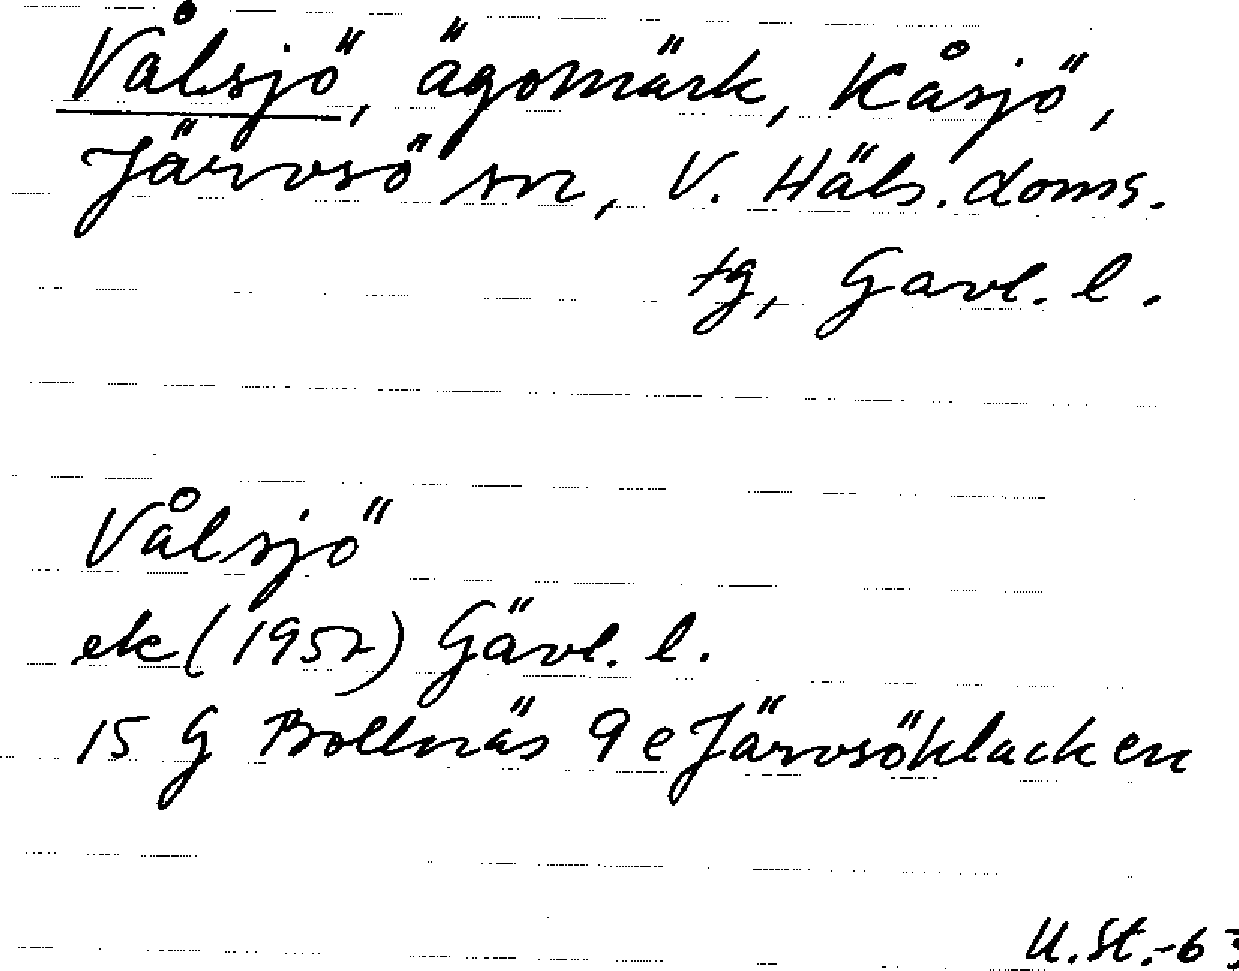 Vålsjö, ägomärk, Kåsjö,
Järvsö sn, V. Häls. doms.
tg, Gävl. l.
Vålsjö
ek (1952) Gävl. l.
15 G Bollnäs 9 e Järvsöklacken
U. St. -63